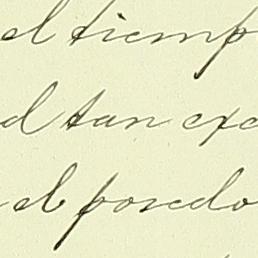 el tiemp
d tan exc
el poredo